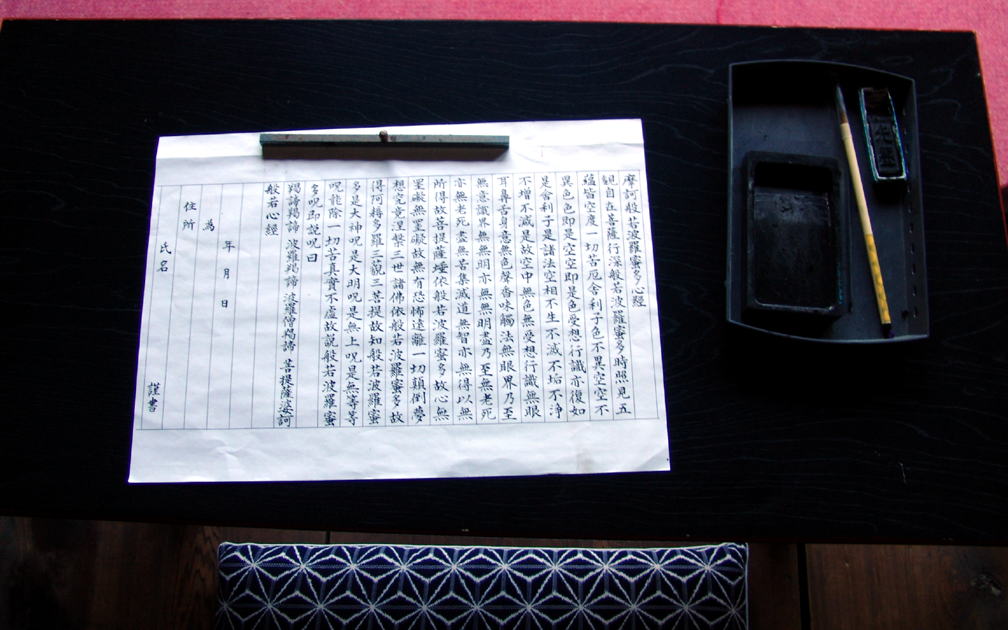 摩訶般若波羅蜜多心経
観自在菩薩行深般若波羅蜜多時照見五
蘊皆空度一切苦厄舎利子色不異空空不
異色色即是空空即是色受想行識亦復如
是舎利子是諸法空相不生不滅不垢不浄
不増不減是故空中無色無受想行識無眼
耳鼻舌身意無色聲香味觸法無眼界乃至
無意識界無無明亦無無明盡乃至無老死
亦無老死盡無苦集滅道無智亦無得以無
所得故菩提薩埵依般若波羅蜜多故心無
罣礙無罣礙故無有恐怖遠離一切顛倒夢
想究竟涅槃三世諸佛依般若波羅蜜多故
得阿耨多羅三藐三菩提故知般若波羅蜜
多是大神呪是大明呪是無上呪是無等等
呪能除一切苦真實不虚故説般若波羅蜜
多呪即説呪曰
羯諦羯諦 波羅羯諦 波羅僧羯諦 菩提薩婆訶
般若心経
年 月 日
為
住所
氏名 謹書